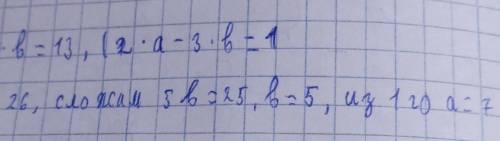 · b = 13, (2 · a - 3 · b = 1
26, сложим 5b = 25, b = 5, из 1го a = 7